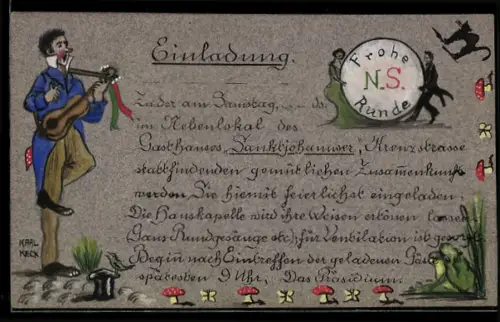 Einladung.
Frohe
N.S.
Runde
Zu der am Samstag, ... ds.
im Nebenlokal des
Gasthauses „Sanktjohanner", Kreuzstrasse
stattfindenden gemütlichen Zusammenkunft
werden Sie hiemit feierlichst eingeladen.
Die Hauskapelle wird ihre Weisen ertönen lassen
Gans Rundgesänge etc), für Ventilation ist gesorgt
Begin nach Eintreffen der geladenen Gäste
spätesten 9 Uhr, Das Präsidium.
KARL
KECK